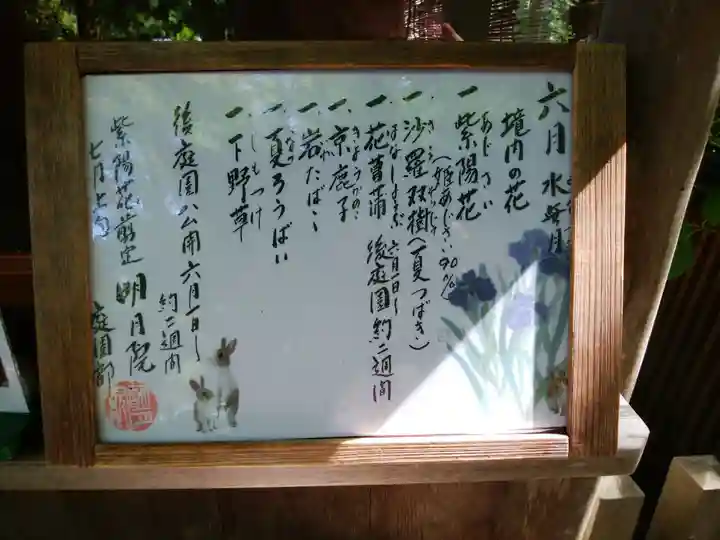 六月 水無月
境内の花
一、紫陽花(姫あじさい90%)
あじさい
一、沙羅双樹(夏つばき)
さらそうじゅ
一、花菖蒲 六月一日〜 後庭園約二週間
はなしょうぶ
一、京鹿子
きょうがのこ
一、岩たばこ
いわ
一、夏ろうばい
なつ
一、下野草
しもつけ
後庭園公開六月一日〜
約二週間
紫陽花剪定 明月院
七月上旬 庭園部